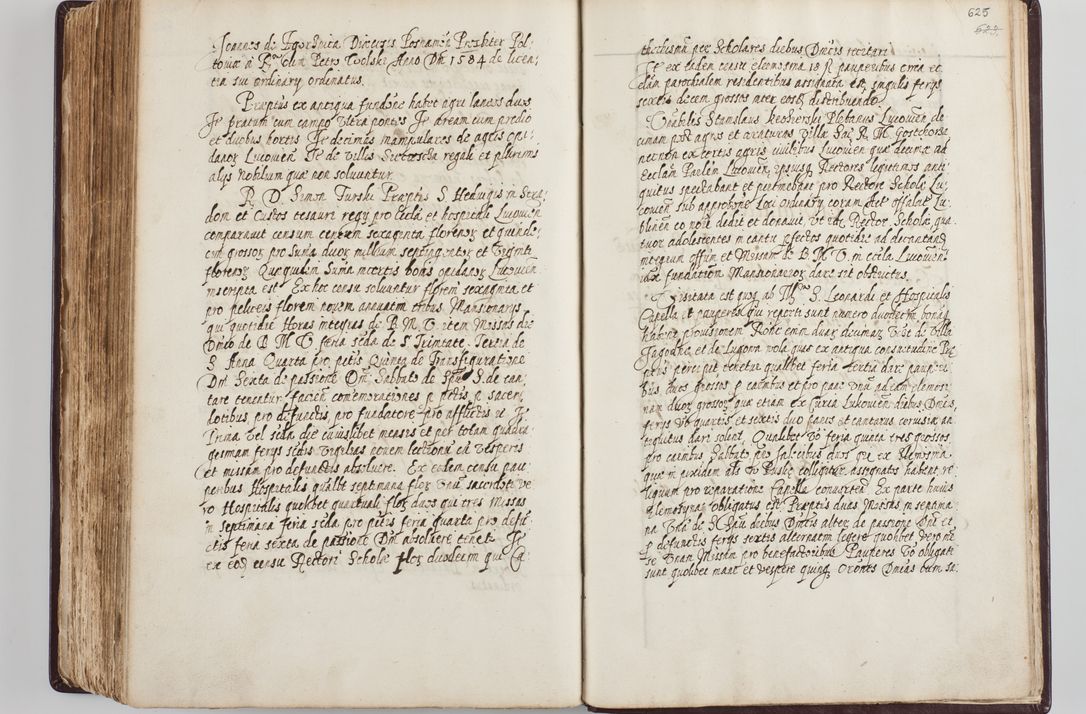 Joannes de Diocesis Posnamen Presbiter Pol-
toviæ à olim Petro Volski Anno Dni 1584 de licen-
tia sui ordinarÿ ordinatus.
Præptus ex antiqua fundone habet agri laneos duos
It pratum cum campo Vltra pontes It aream cum predio
et duobus hortis It decimas manipulares de agris opi-
danos Lucovien It de villes regali et plurimis
alÿs Nobilium quæ non soluuntur.
R. D. Simon Turski Præptus S. Heduigis in
dom et Custos tesauri regÿ pro ecclia et hospitale Lucovien
comparauit censum centum sexaginta florenos et quinde-
cim grossos pro suma duos millium septingentos et viginti
florenos Quæquidem Suma in certis bonis opidanos Lucovien
inscripta est Ex hoc censu soluuntur floren sexaginta et
pro floren novem annuatim tribus Mansionarÿs
qui quotidie Horas integras de B M V. item Missas die
Dnico de B M V feria secda de S Trinitate. Tertia de
S Anna Quarta pro petis Quinta de Transfiguratione
Dni Sexta de passione Dni Sabbato de Spu S. de can-
tare tenentur, facien comemorationes p petis p sacer-
dotibus pro defunctis pro fundatore pro afflictis et. It
Prima vel secda die cuiuslibet mensis et per totam quadra-
gesimam ferÿs secdis Vigilias novem lectionu cu vesperis
et missam pro defunctis absoluere. Ex eodem censu pau-
peribus Hospitalis qualbt septimana flos Sacerdote ve-
ro Hospitalis quolibet quartuali flos duos qui tres missas
in septimana feria secda pro petis feria quarta pro defu-
ctis feria sexta de passione Dni absoluere tenet. It
ex eod censu Rectori Scholæ flos duodecim qui Ca
625
techismu per Scholares diebus Dnicis recitari
It ex eodem censu eleemosina 18 fl pauperibus circa ec-
cliam parochialem residentibus assignata est, singulis ferÿs
sextis decem grossos inter eosd distribuendo.
Vnabilis Stanislaus Plebanus Lucovien de-
cimam post agros et araturas Villæ Sac R. M. Gostchorza
necnon ex certis agris ciuilibus Lucovien quæ decimæ ad
Eccliam Parlem Lucovien, ipsiusq Rectores legitimos anti-
quitus spectabant et pertinebant pro Rectore Scholæ Lu-
covien sub approbone Loci Ordinarÿ coram Act Offalat Lu-
blinen co novi dedit et donauit Vt idem Rector Scholæ qua-
tuor adolescentes in cantu perfectos quotidie ad decantand
integrum offiu et Missam de B. M. V. in ecclia Lucovien
iuxta fundationem Mansionarios dare sit obstrictus.
Visitata est quoq ab S. Leonardi et Hospitalis
Capella et pauperes qui reperti sunt numero duodecim bonam
habent prouisionem Ratione enim duas decimas Vnæ de Villa
Jagodne, et de Lugova wola quas ex antiqua consuetudine Præ-
percipit tenetur qualibet feria tertia dare pauperi-
bus duos grossos p carnibus et pro pane vnu ad eam elemosi-
nam duos grossos quæ etiam ex Curia Lukovien diebus Dnicis,
ferÿs Vt quartis et sextis duo panes et cantarus ceruisiæ an-
tiquitus dari solent. Qualibet Vo feria quinta tres grossos
pro carnibus Sabbato pro salcibus duos gr ex Elemosina
quæ in pixidem als do Puski colligitur assignatos habent re-
liquum pro reparatione Capellæ conuerten. Ex parte huius
Elemosynæ obligatus est Præptus duas Missas in septima-
na Vnã de S Spũ diebus Dnicis alterã de passione Dni et
p defunctis ferÿs sextis alternatim legere quolibet vero
se Vnam Missam pro benefactoribus Pauperes Vo obligati
sunt quolibet mane et vespere quinq Orones Dnicas cum sa-